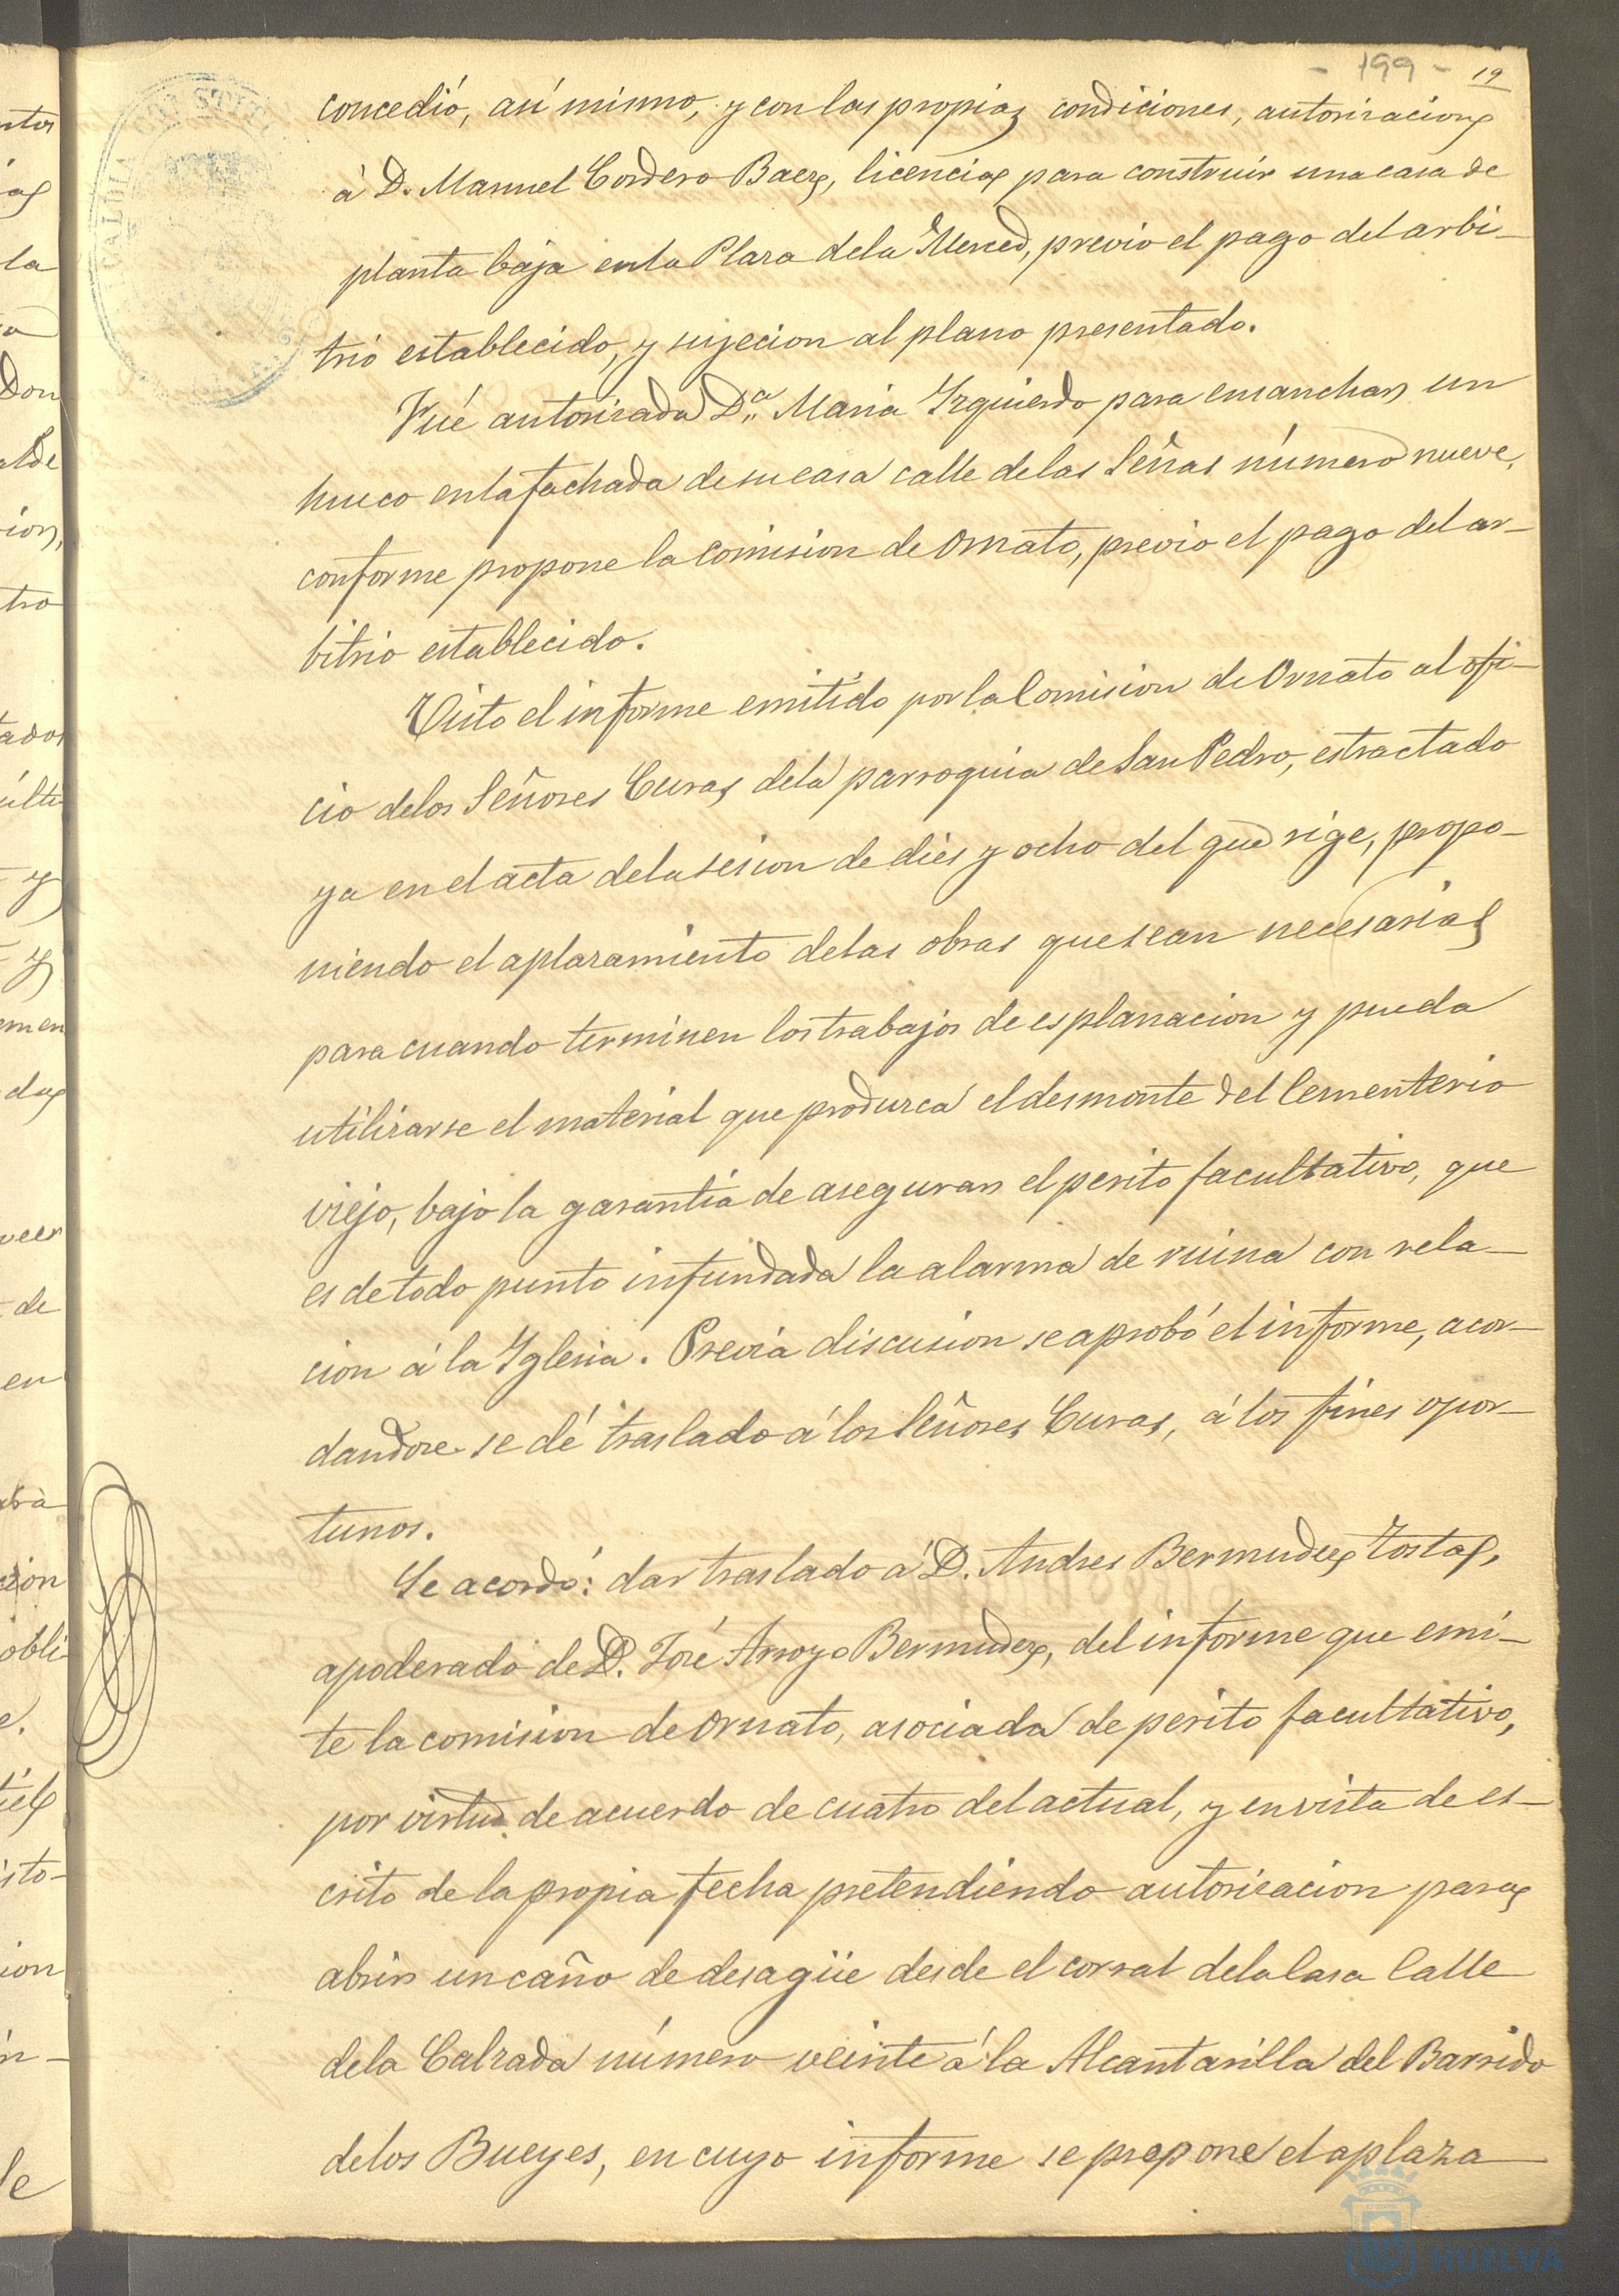 - 199 - 19
concedió, así mismo, y con las propias condiciones, autorizacion
à D. Manuel Cordero Baez, licencia para construir una casa de
planta baja en la Plaza dela Merced, previo el pago del arbi-
trio establecido, y sujecion al plano presentado.
Fué autorizada D.ª Maria Yzquierdo para ensanchar un
hueco en la fachada de su casa calle de las Señas número nueve,
conforme propone la comision de Ornato, previo el pago del ar-
bitrio establecido.
Visto el informe emitido por la Comision de Ornato al ofi-
cio delos Señores Curas dela parroquia de San Pedro, estractado
ya en el acta dela sesion de dies y ocho del que rige, propo-
niendo el aplazamiento delas obras que sean necesarias
para cuando terminen los trabajos de esplanacion y pueda
utilizarse el material que produzca el desmonte del Cementerio
viejo, bajo la garantía de asegurar el perito facultativo, que
es de todo punto infundada la alarma de ruina con rela-
cion á la Yglesia. Previa discusion se aprobó el informe, acor-
dandose se dé traslado á los Señores Curas, á los fines opor-
tunos.
Se acordó: dar traslado á D. Andres Bermudez Tosta,
apoderado de D. José Arroyo Bermudez, del informe que emi-
te la comision de Ornato, asociada de perito facultativo,
por virtud de acuerdo de cuatro del actual, y en vista de es-
crito de la propia fecha pretendiendo autorizacion para
abrir un caño de desagüe desde el corral dela Casa Calle
dela Calzada número veinte á la Alcantarilla del Barrido
delos Bueyes, en cuyo informe se propone el aplaza
HUELVA